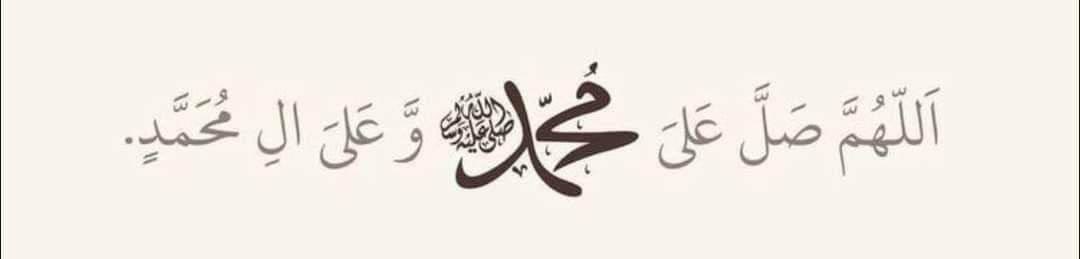 اَللّٰهُمَّ صَلَّ عَلىَ مُحَمَّد ﷺ وَّ عَلىَ الِ مُحَمَّدٍ.